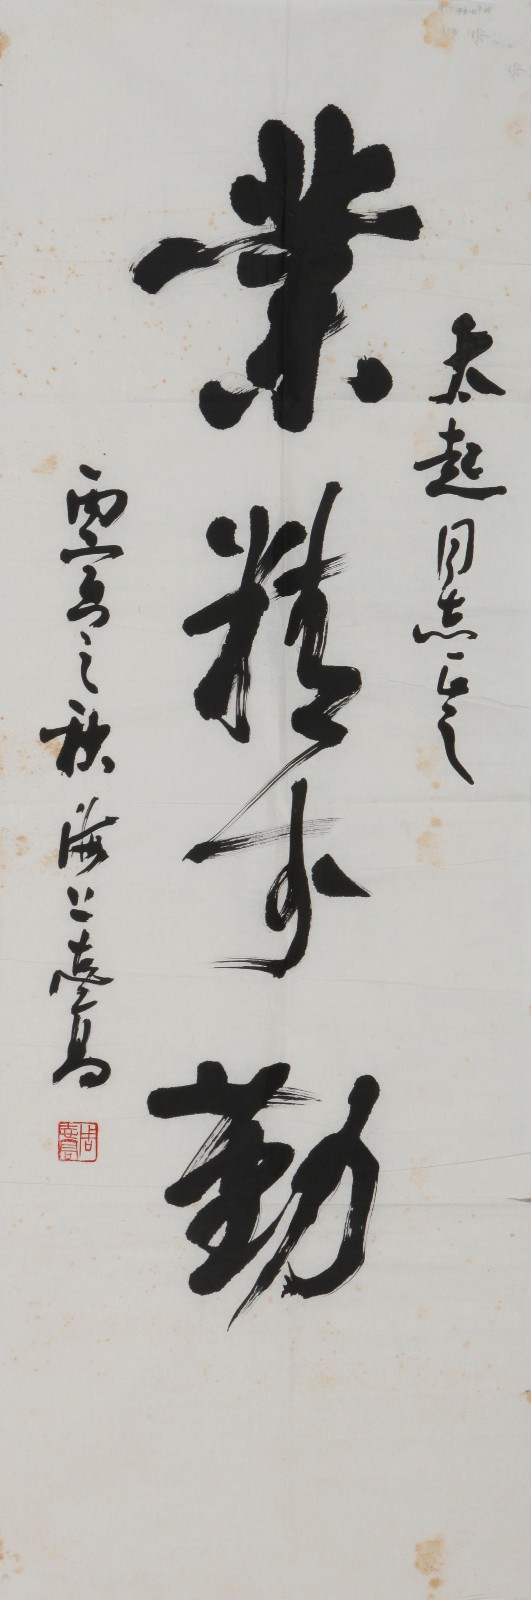 太起同志正之
業精于勤
丙寅之秋海上志高
周志高